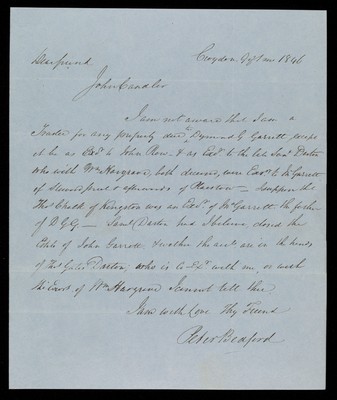 Dear friend Croydon 9th 1 mo 1846
John Candler
I am not aware that I am a
Trustee for any property due to Dymond G Garrett, except
it be as Exor to John Row & as Exor to the late Saml Darton
who with Wm Hargrave, both deceased, were Exors to Garrett
of & afterwards of Plaistow — I suppose that
Thos Chalk of Kingston was an Exor of Garrett the father
of D.G.G — Saml Darton had I believe, closed the
Estate of John Garrett & whether the accts are in the hands
of Thos Gates Darton, who is Co Exr with me, or with
the Exors of Wm Hargrave I cannot tell thee
I am with love Thy Friend
Peter Bedford